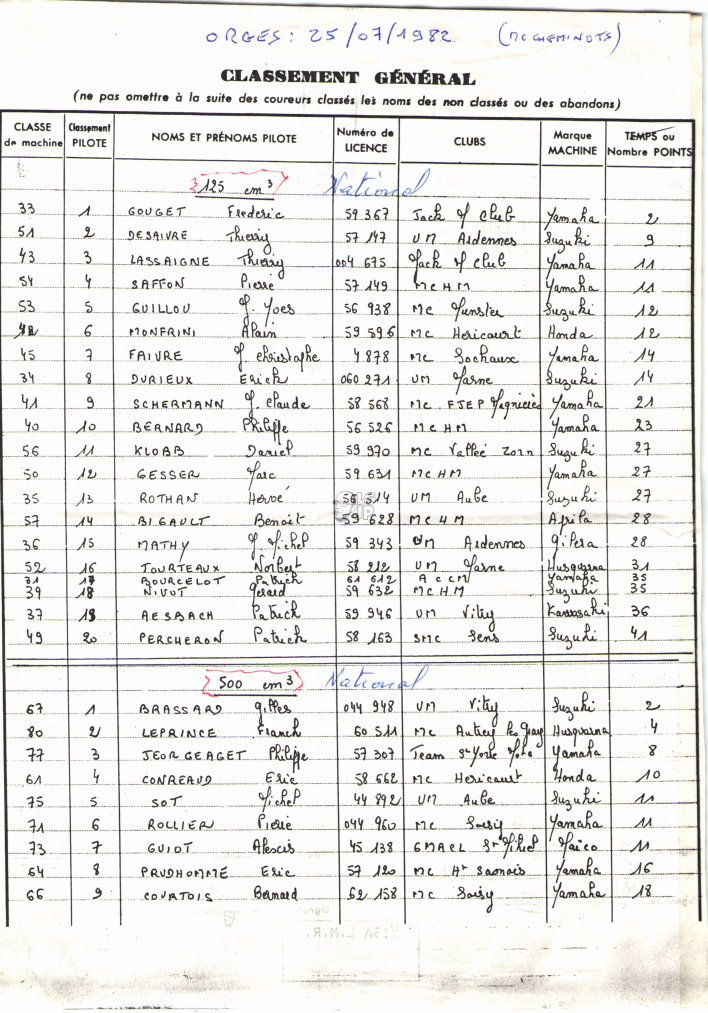 ORGES: 25/07/1982 (MC CHEMINOTS)
CLASSEMENT GÉNÉRAL
(ne pas omettre à la suite des coureurs classés les noms des non classés ou des abandons)
CLASSE de machine | Classement PILOTE | NOMS ET PRÉNOMS PILOTE | Numéro de LICENCE | CLUBS | Marque MACHINE | TEMPS ou Nombre POINTS
125 cm3 National
33 1 GOUGET Frederic 59 367 Jack of Club Yamaha 2
51 2 DESAIVRE Thierry 57 147 UM Ardennes Suzuki 9
43 3 LASSAIGNE Thierry 004 675 Jack of Club Yamaha 11
54 4 SAFFON Pierre 57 149 MCHM Yamaha 11
53 5 GUILLOU J. Yves 56 938 MC Munster Suzuki 12
42 6 MONFRINI Alain 59 596 MC Hericourt Honda 12
45 7 FAIVRE J. christophe 4 878 MC Sochaux Yamaha 14
34 8 DURIEUX Erick 060 271 UM Marne Suzuki 14
41 9 SCHERMANN J. Claude 58 568 MC FJEP Yamaha 21
40 10 BERNARD Philippe 56 526 MCHM Yamaha 23
56 11 KLOBB Daniel 59 970 MC Valleé Zorn Suzuki 27
50 12 GESSER Marc 59 631 MCHM Yamaha 27
35 13 ROTHAN Hervé 56 514 UM Aube Suzuki 27
57 14 BIGAULT Benoit 59 628 MCHM Aprila 28
36 15 MATHY J Michel 59 343 UM Ardennes Gilera 28
52 16 TOURTEAUX Norbert 58 212 UM Marne Husqvarna 31
31 17 BOURCELOT Patrick 61 612 ACCM Yamaha 35
39 18 NIVOT Gerard 59 632 MCHM Suzuki 35
37 19 AESBACH Patrick 59 946 UM Vitry Kawasaki 36
49 20 PERCHERON Patrick 58 163 SMC Sens Suzuki 41
500 cm3 National
67 1 BRASSARD Gilles 044 948 UM Vitry Suzuki 2
80 2 LEPRINCE Franck 60 511 MC Autrey les Gray Husqvarna 4
77 3 JEORGEAGET Philippe 57 307 Team Yamaha 8
61 4 CONREAUD Eric 58 662 MC Hericourt Honda 10
75 5 SOT Michel 44 892 UM Aube Suzuki 11
71 6 ROLLIER Pierre 044 960 MC Soisy Yamaha 11
73 7 GUIOT Alexis 45 138 GMAEL St Mihiel Maïco 11
64 8 PRUDHOMME Eric 57 120 MC Ht Saonois Yamaha 16
66 9 COURTOIS Bernard 62 158 MC Soisy Yamaha 18